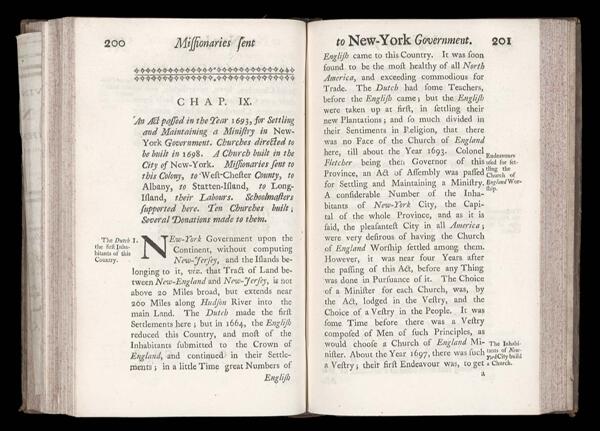 200 Miſſionaries ſent
CHAP. IX.
An Act paſſed in the Year 1693, for Settling
and Maintaining a Miniſtry in New-
York Government. Churches directed to
be built in 1698. A Church built in the
City of New-York. Miſſionaries ſent to
this Colony, to Weſt-Cheſter County, to
Albany, to Statten-Iſland, to Long-
Iſland, their Labours. Schoolmaſters
ſupported here. Ten Churches built;
Several Donations made to them.
The Dutch
the firſt Inha-
bitants of this
Country.
1. NEw-York Government upon the
Continent, without computing
New-Jerſey, and the Iſlands be-
longing to it, viz. that Tract of Land be-
tween New-England and New-Jerſey, is not
above 20 Miles broad, but extends near
260 Miles along Hudſon River into the
main Land. The Dutch made the firſt
Settlements here; but in 1664, the Engliſh
reduced this Country, and moſt of the
Inhabitants ſubmitted to the Crown of
England, and continued in their Settle-
ments; in a little Time great Numbers of
Engliſh
to New-York Government. 201
Engliſh came to this Country. It was ſoon
found to be the moſt healthy of all North
America, and exceeding commodious for
Trade. The Dutch had ſome Teachers,
before the Engliſh came; but the Engliſh
were taken up at firſt, in ſettling their
new Plantations; and ſo much divided in
their Sentiments in Religion, that there
was no Face of the Church of England
here, till about the Year 1693. Colonel
Fletcher being then Governor of this
Province, an Act of Aſſembly was paſſed
for Settling and Maintaining a Miniſtry.
A conſiderable Number of the Inha-
bitants of New-York City, the Capi-
tal of the whole Province, and as it is
ſaid, the pleaſanteſt City in all America;
were very deſirous of having the Church
of England Worſhip ſettled among them.
However, it was near four Years after
the paſſing of this Act, before any Thing
was done in Purſuance of it. The Choice
of a Miniſter for each Church, was, by
the Act, lodged in the Veſtry, and the
Choice of a Veſtry in the People. It was
ſome Time before there was a Veſtry
compoſed of Men of ſuch Principles, as
would chooſe a Church of England Mi-
niſter. About the Year 1697, there was ſuch
a Veſtry; their firſt Endeavour was, to get
a
Endeavours
uſed for ſet-
tling the
Church of
England Wor-
ſhip.
The Inhabi-
tants of New-
York City build
a Church.